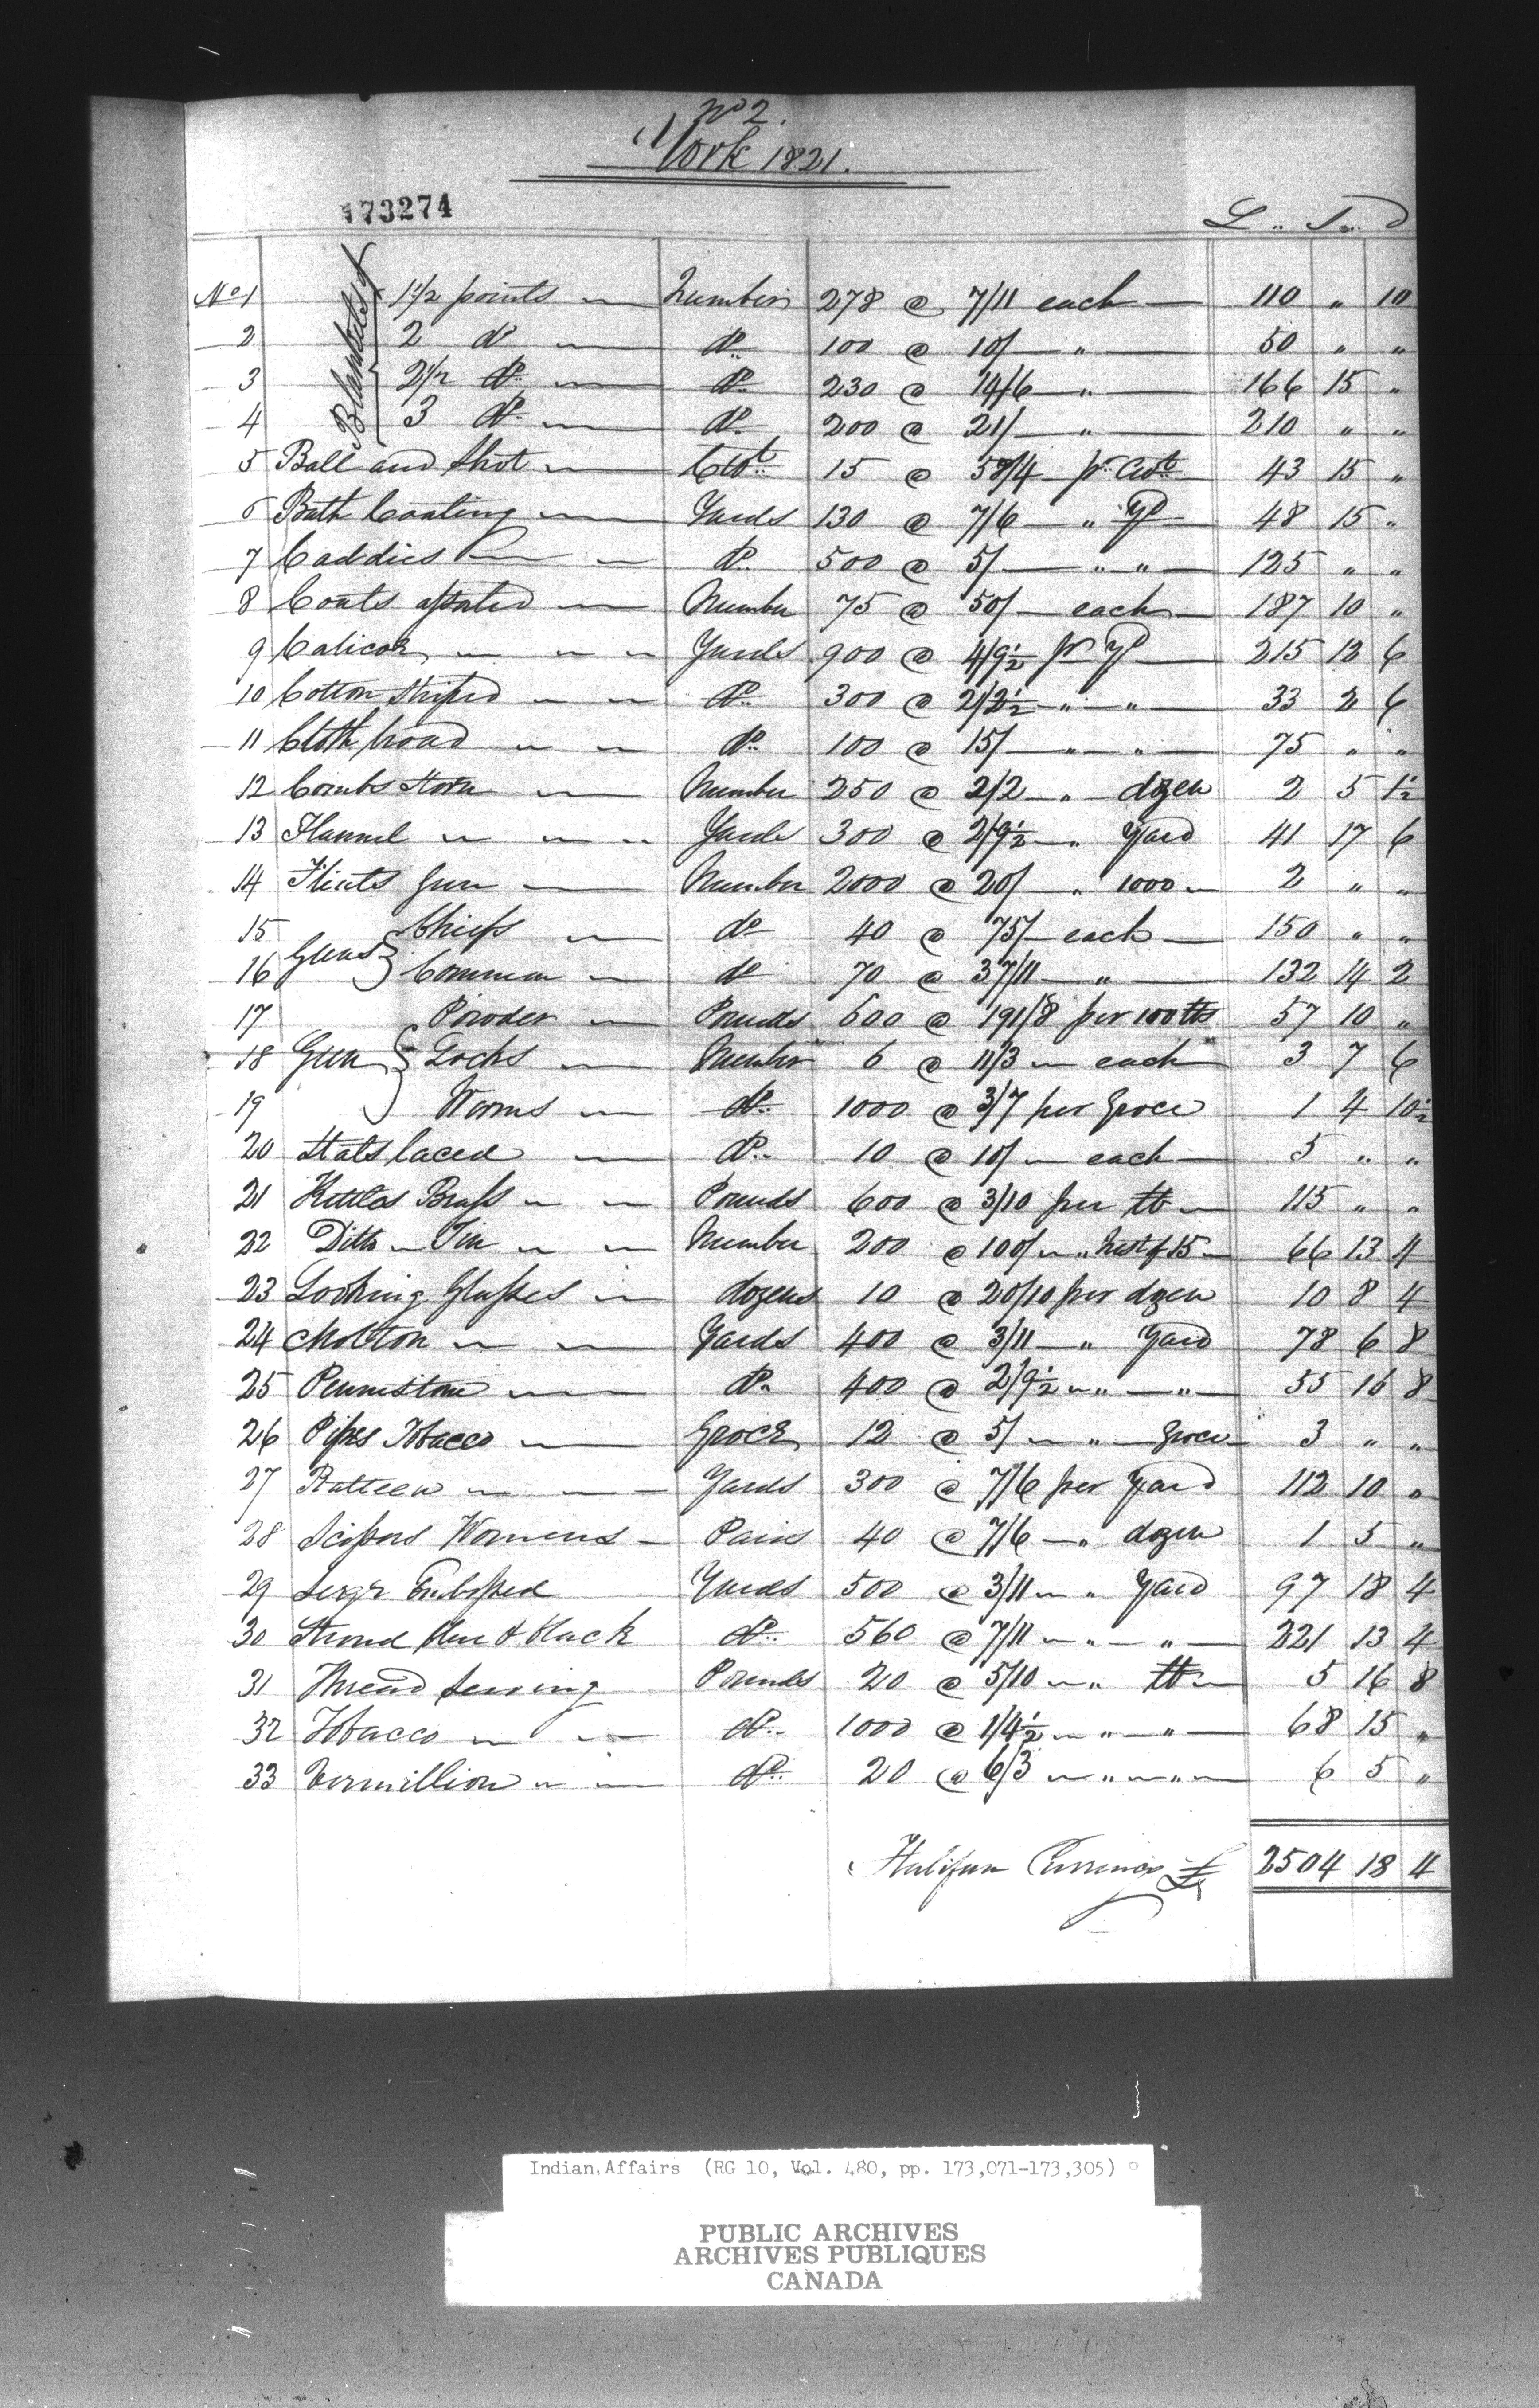 No 2.
York 1821.
173274
L .. S .. D
No 1 Blankets of 1 1/2 points Number 278 @ 7/11 each 110 " 10
2 2 do do 100 @ 10/ " 50 " "
3 2 1/2 do do 230 @ 14/6 " 166 15 "
4 3 do do 200 @ 21/ " 210 " "
5 Ball and Shot Cwt 15 @ 58/4 pr Cwt 43 15 "
6 Bath Coating Yards 130 @ 7/6 " Yd 48 15 "
7 Caddies do 500 @ 5/ " " 125 " "
8 Coats assorted Number 75 @ 50/ each 187 10 "
9 Calicoe Yards 900 @ 4/9 1/2 pr Yd 215 12 6
10 Cotton Striped do 300 @ 2/2 1/2 " " 33 2 6
11 Cloth broad do 100 @ 15/ " " 75 " "
12 Combs Horn Number 250 @ 2/2 " dozen 2 5 1 1/2
13 Flannel Yards 300 @ 2/9 1/2 " Yard 41 17 6
14 Flints Gun Number 2000 @ 20/ " 1000 2 " "
15 Guns Chiefs do 40 @ 75/ each 150 " "
16 Common do 70 @ 37/11 " 132 14 2
17 Powder Pounds 600 @ 191/8 per 100 lbs 57 10 "
18 Gun Locks Number 6 @ 11/3 each 3 7 6
19 Worms do 1000 @ 3/7 per Groce 1 4 10 1/2
20 Hats laced do 10 @ 10/ each 5 " "
21 Kettles Brass Pounds 600 @ 3/10 per lb 115 " "
22 Ditto Tin Number 200 @ 100/ " Nest of 15 66 13 4
23 Looking Glasses dozens 10 @ 20/10 per dozen 10 8 4
24 Molton Yards 400 @ 3/11 " Yard 78 6 8
25 Pennistone do 400 @ 2/9 1/2 " " 55 16 8
26 Pipes Tobacco Groce 12 @ 5/ " Groce 3 " "
27 Ratteen Yards 300 @ 7/6 per Yard 112 10 "
28 Scissors Womens Pairs 40 @ 7/6 " dozen 1 5 "
29 Serge Embossed Yards 500 @ 3/11 " Yard 97 18 4
30 Stroud blue & black do 560 @ 7/11 " " 221 13 4
31 Thread Sewing Pounds 20 @ 5/10 " lb 5 16 8
32 Tobacco do 1000 @ 1/4 1/2 " " 68 15 "
33 Vermillion do 20 @ 6/3 " " 6 5 "
Halifax Currency £ 2504 18 4
Indian Affairs (RG 10, Vol. 480, pp. 173,071-173,305)
PUBLIC ARCHIVES
ARCHIVES PUBLIQUES
CANADA